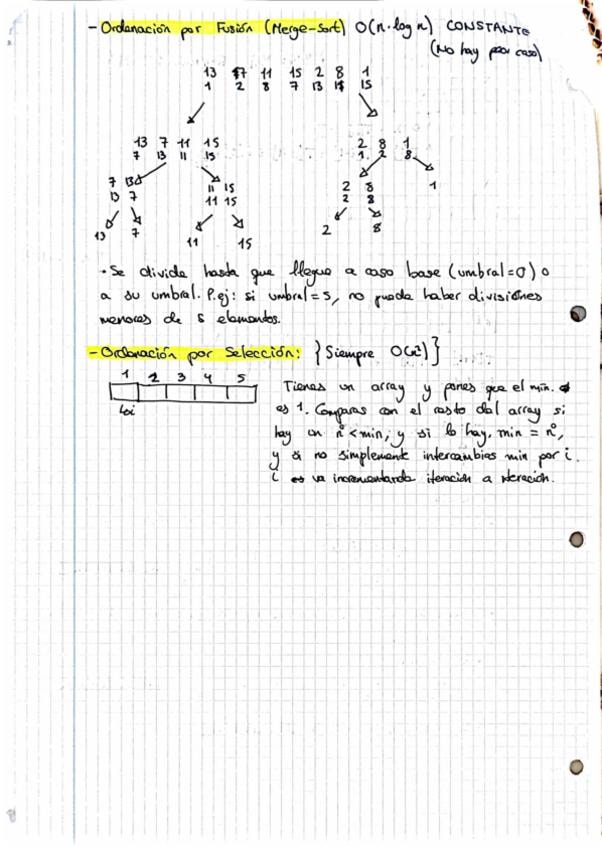 - Ordenación por Fusión (Merge-Sort) O(n·log n) CONSTANTE
(No hay peor caso)
13 7 11 15 2 8 1
1 2 8 7 13 15
13 7 11 15
7 13 11 15
2 8 1
1 2 8
7 13
13 7
11 15
11 15
2 8
2 8
1
13 7
11 15
2 8
• Se divide hasta que llegue a caso base (umbral=0) o
a su umbral. P.ej: si umbral = 5, no puede haber divisiones
menores de 5 elementos.
- Ordenación por Selección: {Siempre O(n²)}
1 2 3 4 5
↳i
Tienes un array y pones que el min.
es 1. Comparas con el resto del array si
hay un nº < min, y si lo hay, min = nº,
y si no simplemente intercambias min por i.
i va incrementando iteración a iteración.